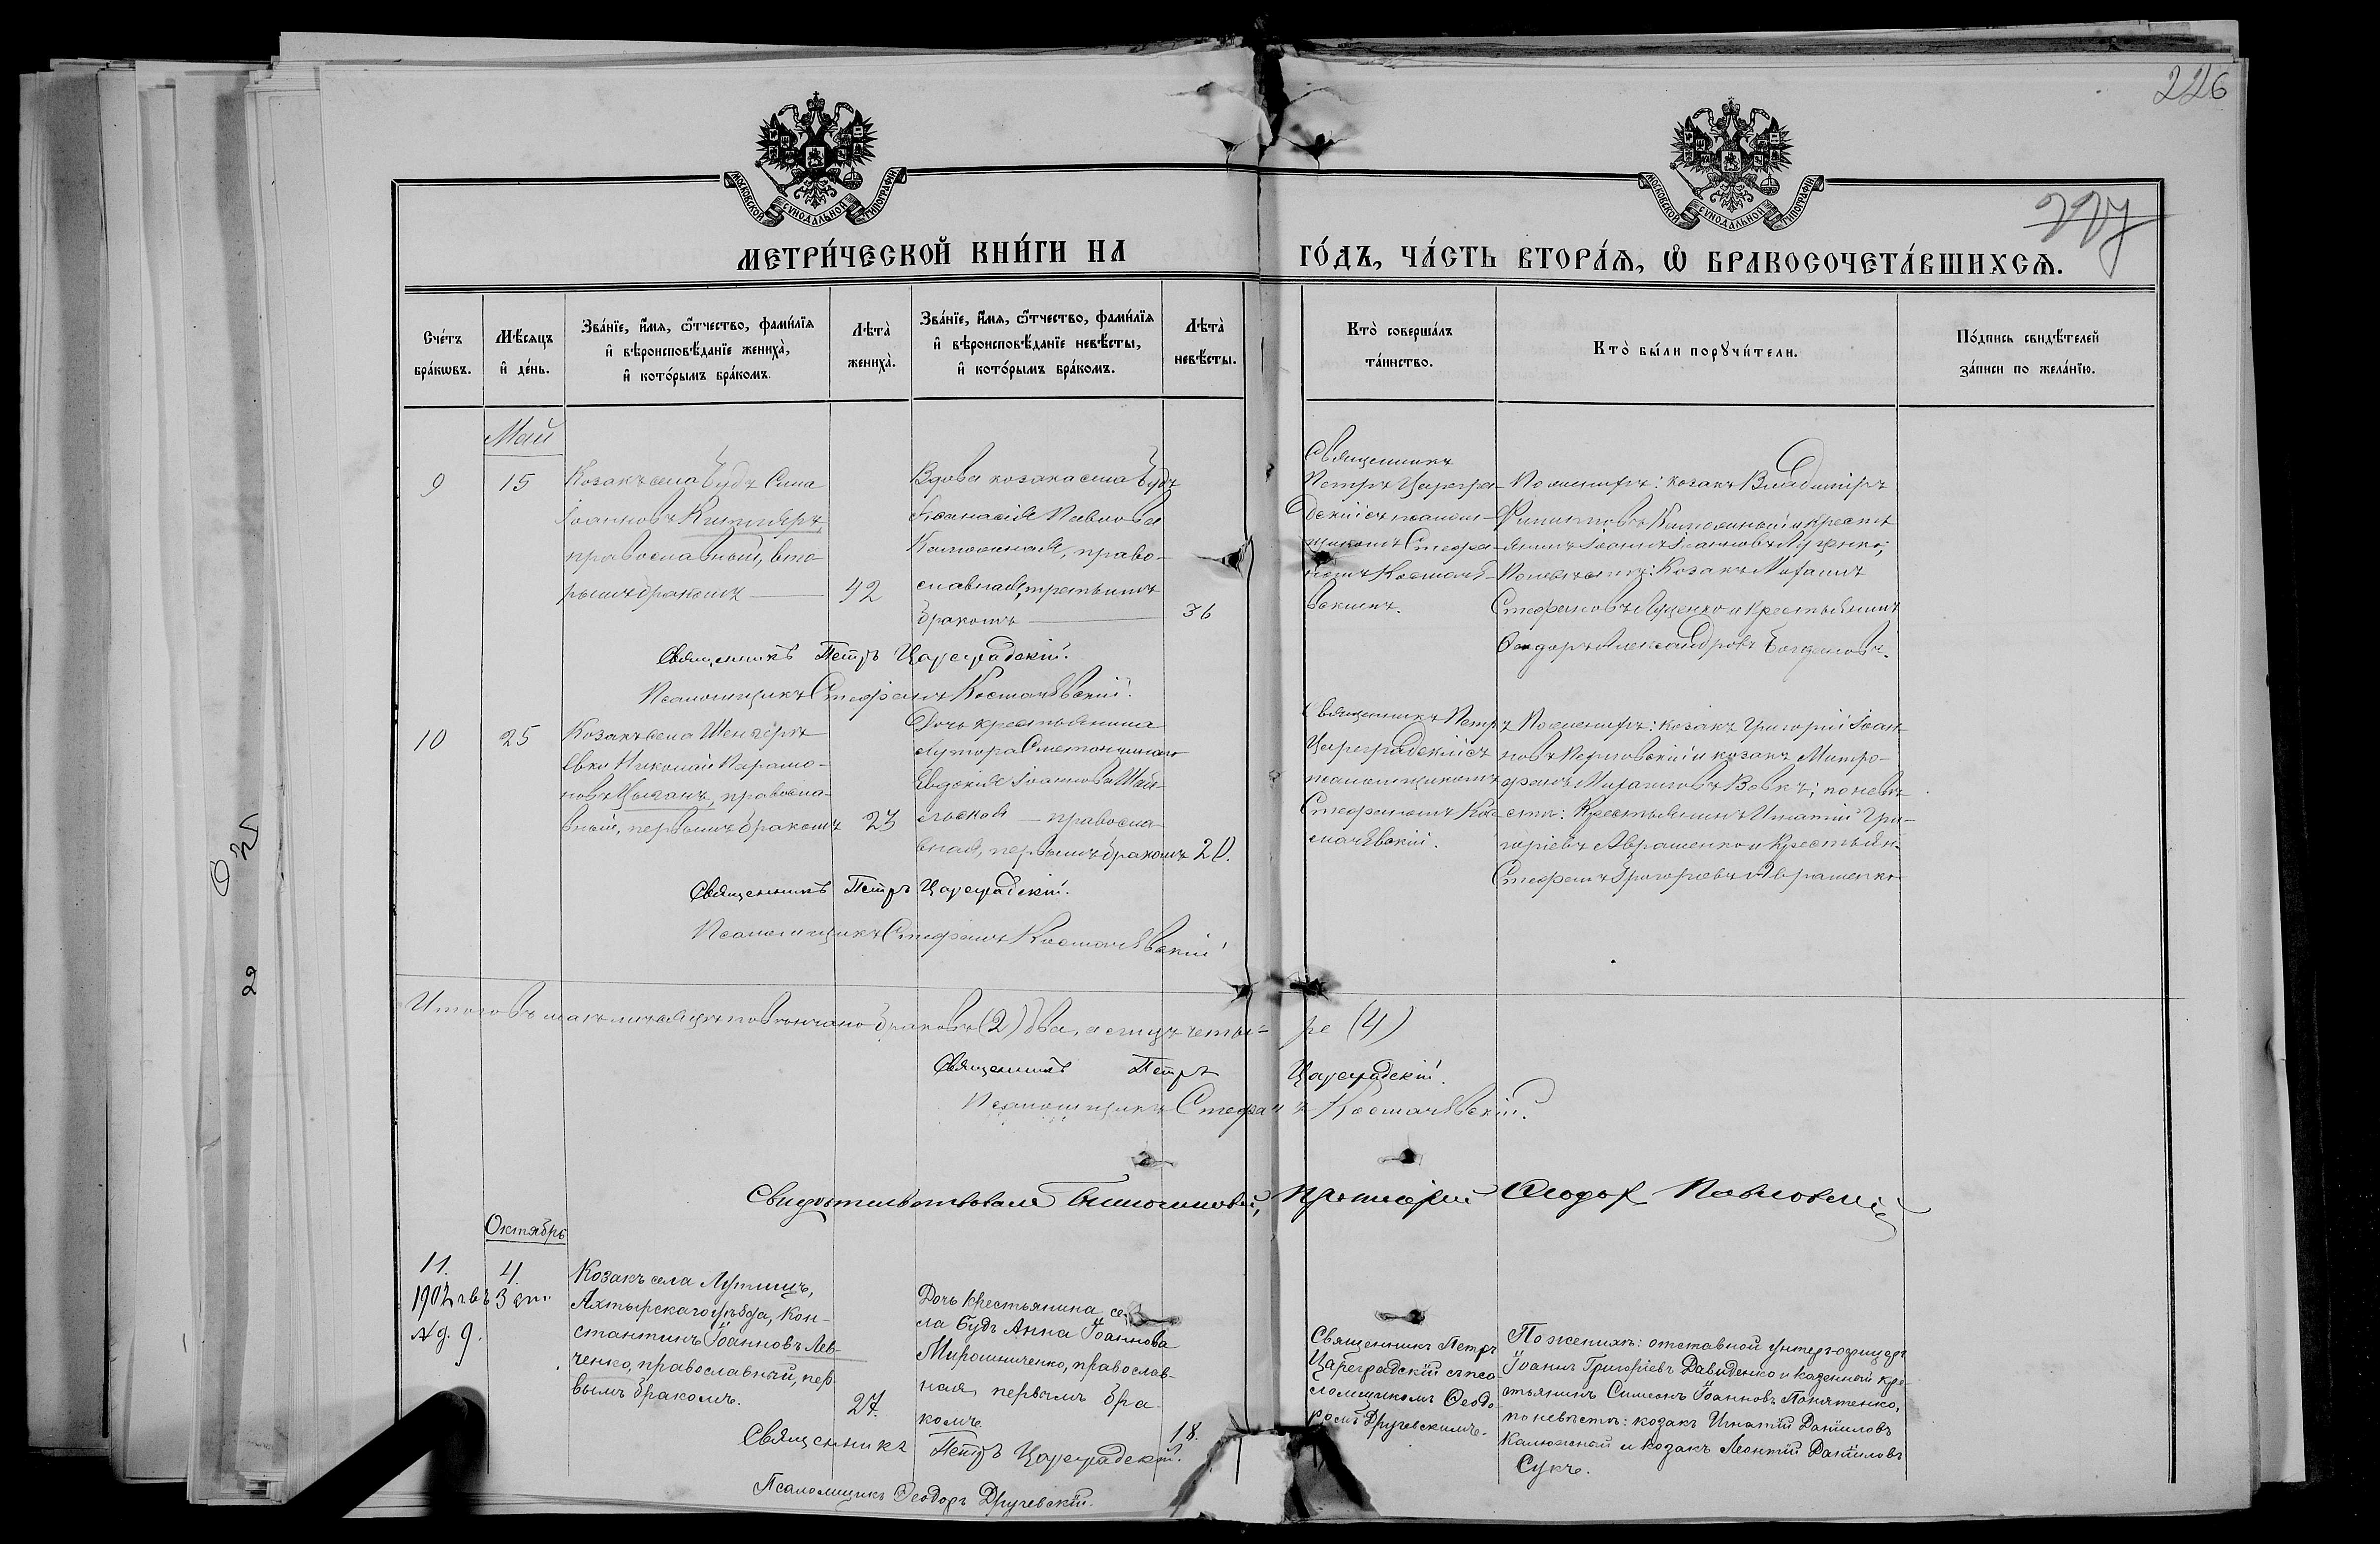 226
227
МОСКОВСКОЙ СѴНОДАЛЬНОЙ ТИПОГРАФІИ
МОСКОВСКОЙ СѴНОДАЛЬНОЙ ТИПОГРАФІИ
МЕТРИ́ЧЕСКОЙ КНИ́ГИ НА ГО́ДЪ, ЧА́СТЬ ВТОРА́Я, Ѡ БРАКОСОЧЕТА́ВШИХСЯ.
Сче́тъ
бра́кѡвъ.
Мѣ́сяцъ
и҆ де́нь.
Зва́нїе, и҆́мя, ѻ҆́тчество, фами́лїя
и҆ вѣроисповѣ́данїе жениха̀,
и҆ кото́рымъ бра́комъ.
Лѣта̀
жениха̀.
Зва́нїе, и҆́мя, ѻ҆́тчество, фами́лїя
и҆ вѣроисповѣ́данїе невѣ́сты,
и҆ кото́рымъ бра́комъ.
Лѣта̀
невѣ́сты.
Кто̀ соверша́лъ
та́инство.
Кто̀ бы́ли порꙋчи́тели.
По́дпись свидѣ́телей
за́писи по жела́нїю.
Май
9
15
Козакъ села Будъ
Іоанновъ
православный, вто-
рымъ бракомъ
42
Вдова козака села Будъ
Павлова
Калюжная, право-
славная, третьимъ
бракомъ
36
Священникъ
Петръ Царегра-
дскій съ псалом-
щикомъ Стефа-
номъ
По женихѣ: козакъ Владиміръ
Филипповъ Калюжный и кресть-
янинъ Іоаннъ Іоанновъ
По невѣстѣ: Козакъ Михаилъ
Стефановъ Луценко и Крестьянинъ
Ѳеодоръ Александровъ
Священникъ Петръ Цареградскій.
Псаломщикъ Стефанъ
10
25
Козакъ села
Николай Парамо-
новъ Цыганъ, правосла-
вный, первымъ бракомъ
23
Дочь крестьянина
хутора
Евдокія Іоаннова
правосла-
вная, первымъ бракомъ
20.
Священникъ Петръ
Цареградскій съ
псаломщикомъ
Стефаномъ
По женихѣ: козакъ Григорій Іоан-
новъ и козакъ Митро-
фанъ Михаиловъ Вовкъ; по невѣ-
стѣ: Крестьянинъ Игнатій Гри-
горіевъ Авраменко и Крестьян.
Стефанъ Григоріевъ Авраменко
Священникъ Петръ Цареградскій.
Псаломщикъ Стефанъ
Итого въ маѣ мѣсяцѣ повѣнчано браковъ (2) два, а лицъ четы-ре (4)
Священникъ Петръ Цареградскій.
Псаломщикъ Стефанъ
Свидѣтельствовалъ Благочинный, Протоіерей Ѳеодоръ
Октябрь
11.
4.
Козакъ села Лутищъ,
Ахтырскаго уѣзда, Кон-
стантинъ Іоанновъ Лев-
ченко, православный, пер-
вымъ бракомъ.
27.
Дочь крестьянина се-
ла Будъ Анна Іоаннова
Мирошниченко, православ-
ная, первымъ бра-
комъ.
18.
Священникъ Петръ
Цареградскій съ пса-
ломщикомъ Ѳеодо-
ромъ Дручевскимъ.
По женихѣ: отставной унтеръ-офицеръ
Іоаннъ Григоріевъ Давиденко и казенный кре-
стьянинъ Симеонъ Іоанновъ
по невѣстѣ: козакъ Игнатій Даніиловъ
Калюжный и козакъ Леонтій Даніиловъ
Сукъ.
Священникъ Петръ Цареградскій.
Псаломщикъ Ѳеодоръ Дручевскій.